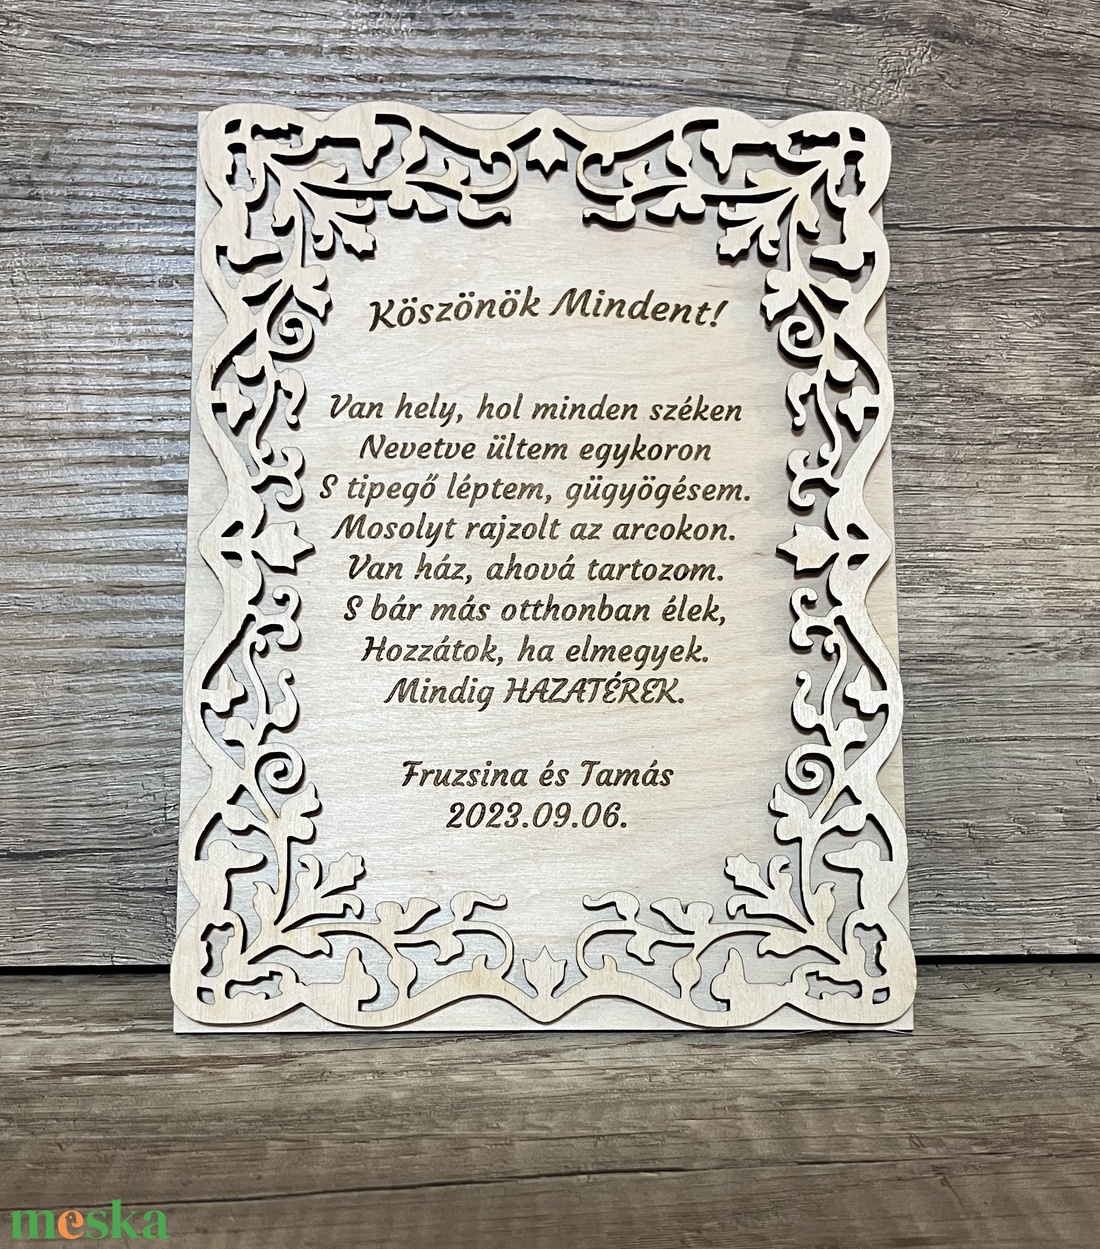 Köszönök Mindent!
Van hely, hol minden széken
Nevetve ültem egykoron
S tipegő léptem, gügyögésem.
Mosolyt rajzolt az arcokon.
Van ház, ahová tartozom.
S bár más otthonban élek,
Hozzátok, ha elmegyek.
Mindig HAZATÉREK.
Fruzsina és Tamás
2023.09.06.
meska